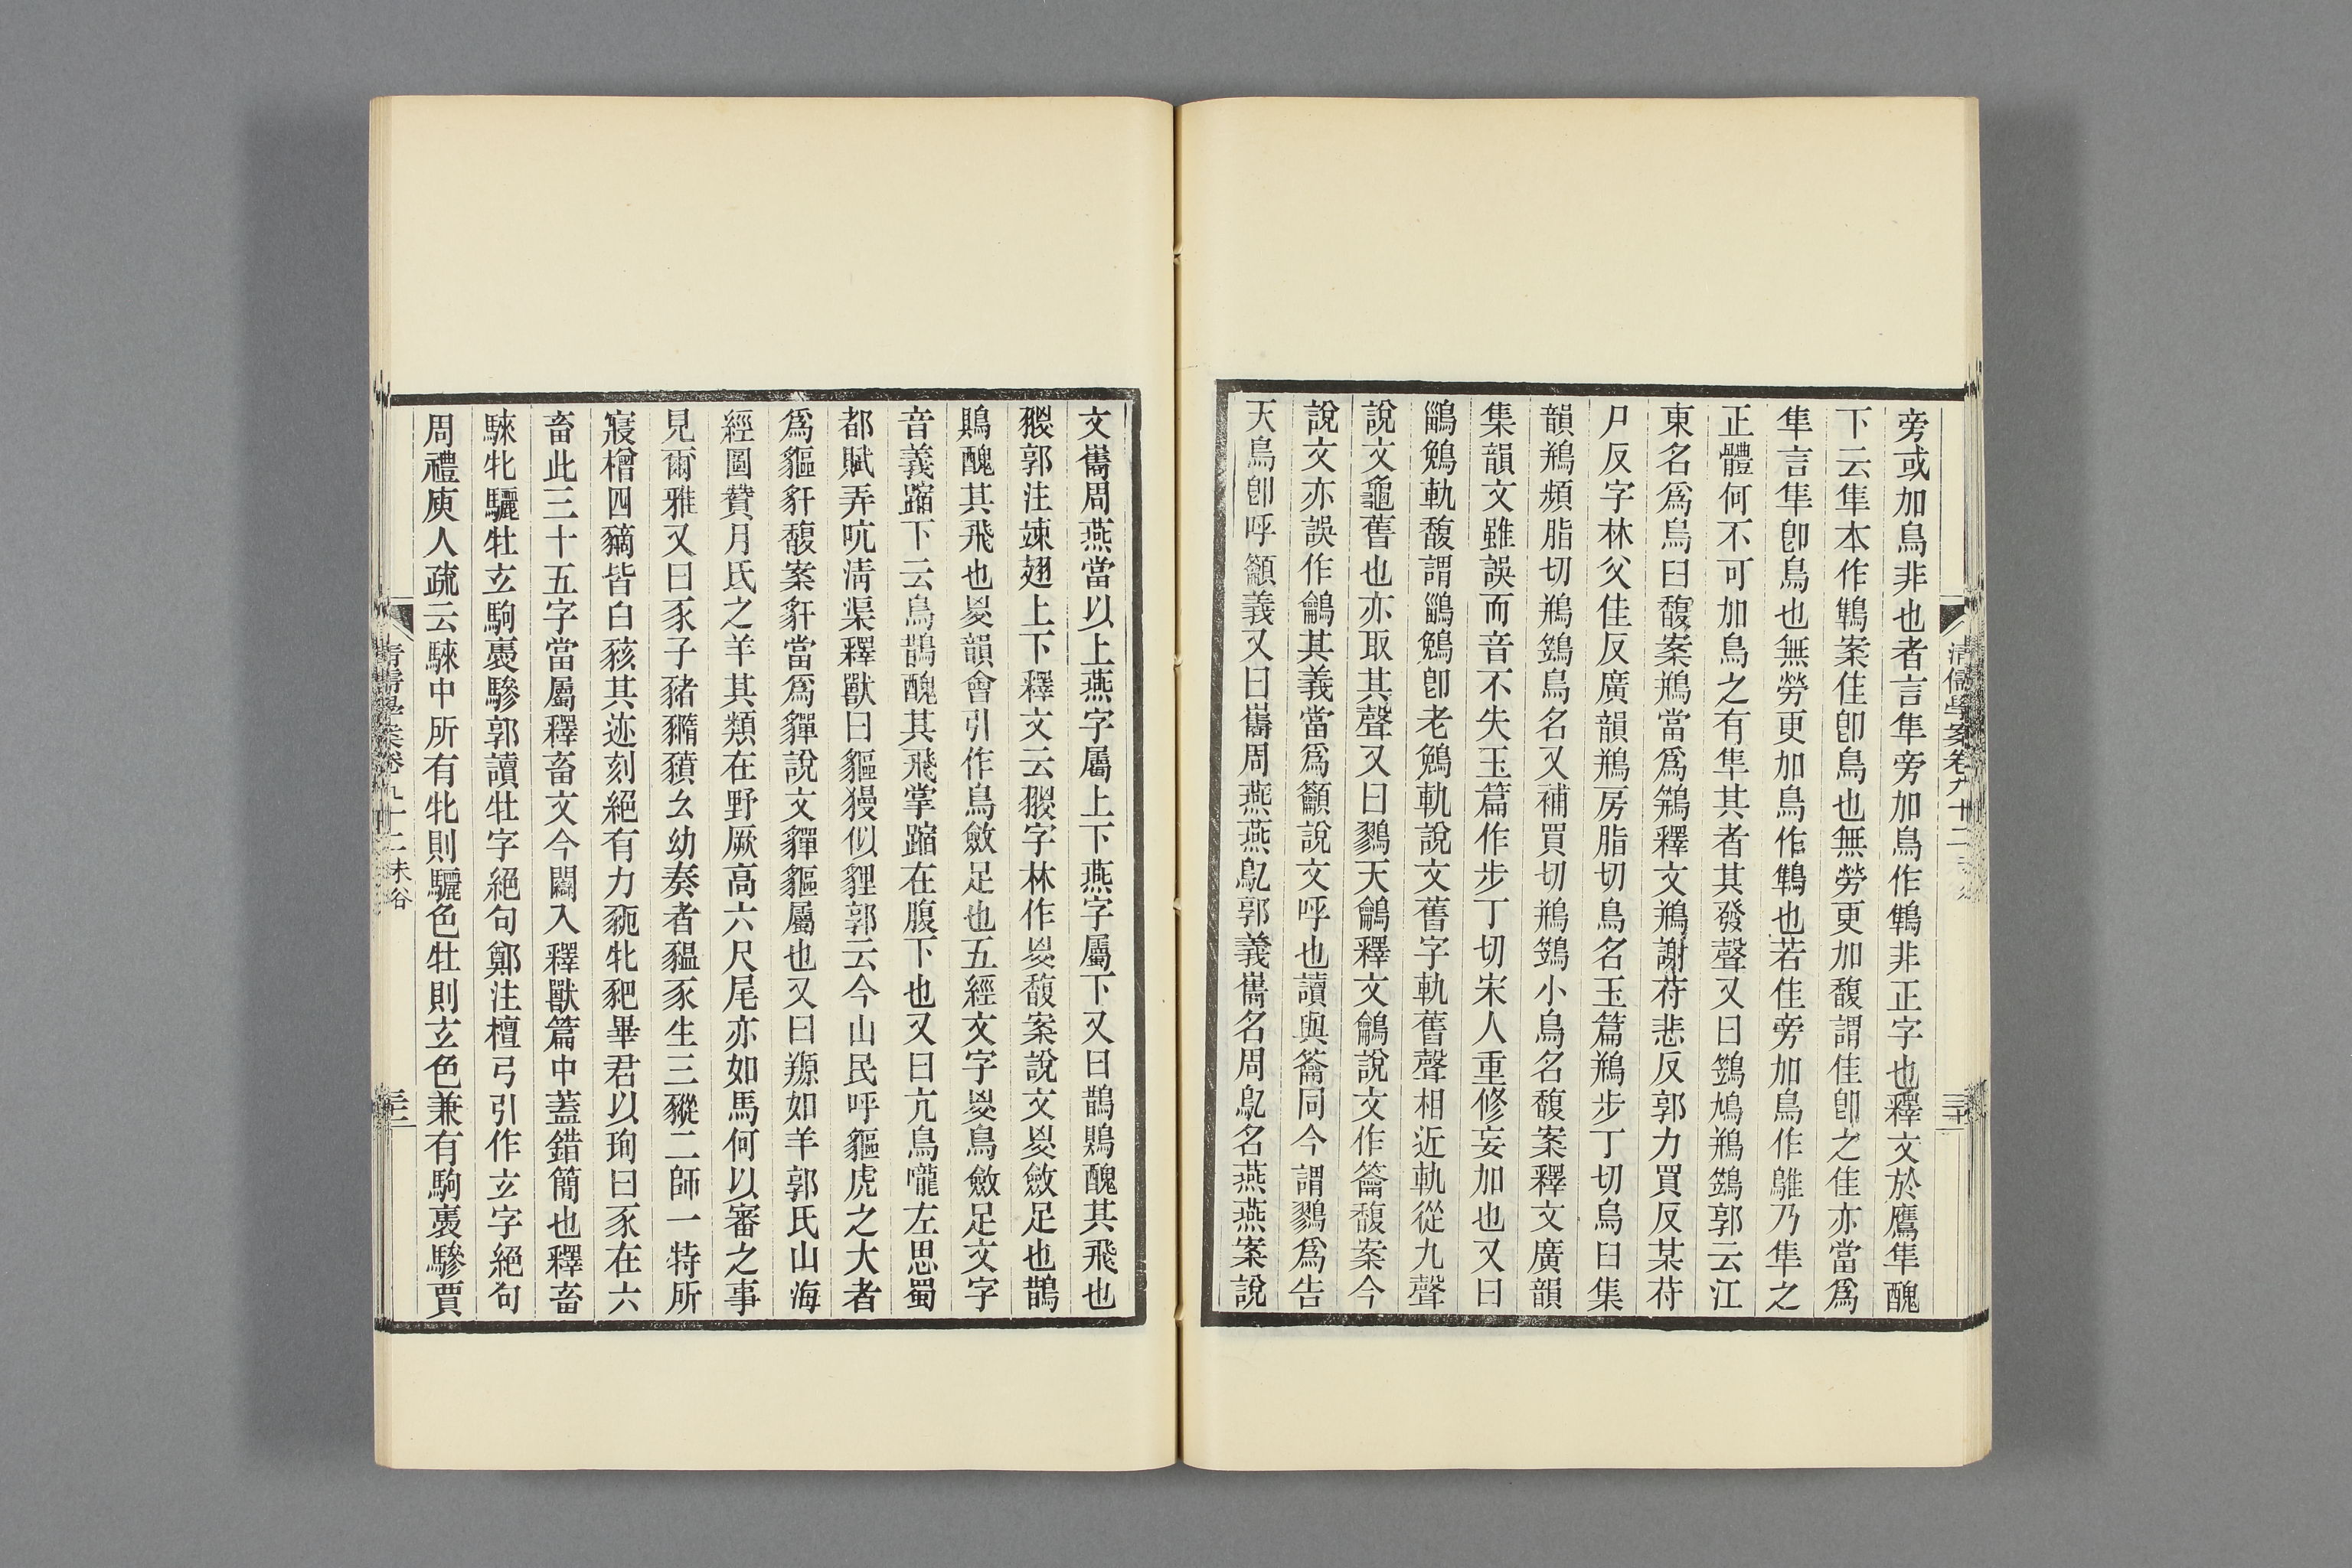 旁或加鳥非也者言隼旁加鳥作鵻非正字也釋文於鷹隼醜
下云隼本作鵻案隹卽鳥也無勞更加馥謂隹卽之隹亦當爲
隼言隼卽鳥也無勞更加鳥作鵻也若隹旁加鳥作鵻乃隼之
正體何不可加鳥之有隼其者其發聲又曰鷑鳩鵧鷑郭云江
東名爲烏臼馥案鵧當爲鵧釋文鵧謝苻悲反郭力買反某苻
尸反字林父隹反廣韻鵧房脂切鳥名玉篇鵧步丁切烏臼集
韻鵧頻脂切鵧鷑鳥名又補買切鵧鷑小鳥名馥案釋文廣韻
集韻文雖誤而音不失玉篇作步丁切宋人重修妄加也又曰
鶅鵵軌馥謂鶅鵵卽老鵵軌說文舊字軌舊聲相近軌從九聲
說文龜舊也亦取其聲又曰鷚天鸙釋文鸙說文作籥馥案今
說文亦誤作鸙其義當爲籲說文呼也讀與籥同今謂鷚爲告
天鳥卽呼籲義又曰巂周燕燕鳦郭義巂名周鳦名燕燕案說
文巂周燕當以上燕字屬上下燕字屬下又曰鵲鶪醜其飛也
翪郭注竦翅上下釋文云翪字林作㚇馥案說文㚇斂足也鵲
鶪醜其飛也㚇韻會引作鳥斂足也五經文字㚇鳥斂足文字
音義蹜下云鳥鵲醜其飛掌蹜在腹下也又曰亢鳥嚨左思蜀
都賦弄吭淸渠釋獸曰貙獌似貍郭云今山民呼貙虎之大者
爲貙豻馥案豻當爲貚說文貚貙屬也又曰羱如羊郭氏山海
經圖贊月氏之羊其類在野厥高六尺尾亦如馬何以審之事
見爾雅又曰豕子豬䝐豶幺幼奏者豱豕生三豵二師一特所
寢橧四豴皆白豥其迹刻絕有力豟牝豝畢君以珣曰豕在六
畜此三十五字當屬釋畜文今闌入釋獸篇中蓋錯簡也釋畜
騋牝驪牡玄駒褭驂郭讀牡字絕句鄭注檀弓引作玄字絕句
周禮庾人疏云騋中所有牝則驪色牡則玄色兼有駒褭驂賈
清儒學案卷九十二 未谷